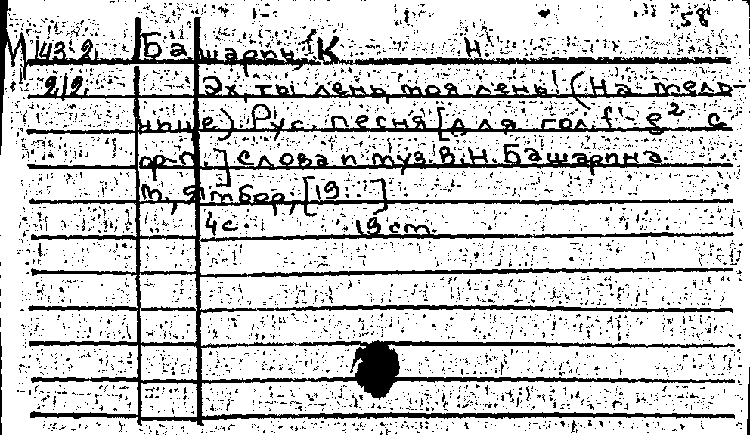 58
М 143.2. Башарин, К Н
212. Эх, ты лень, моя лень! (На мель-
ныце). Рус. песня [для гол. f'-g² с
ф-п.] Слова и муз. В.Н. Башарина.
М., Ямбор, [19..]
4 с. 19 cm.